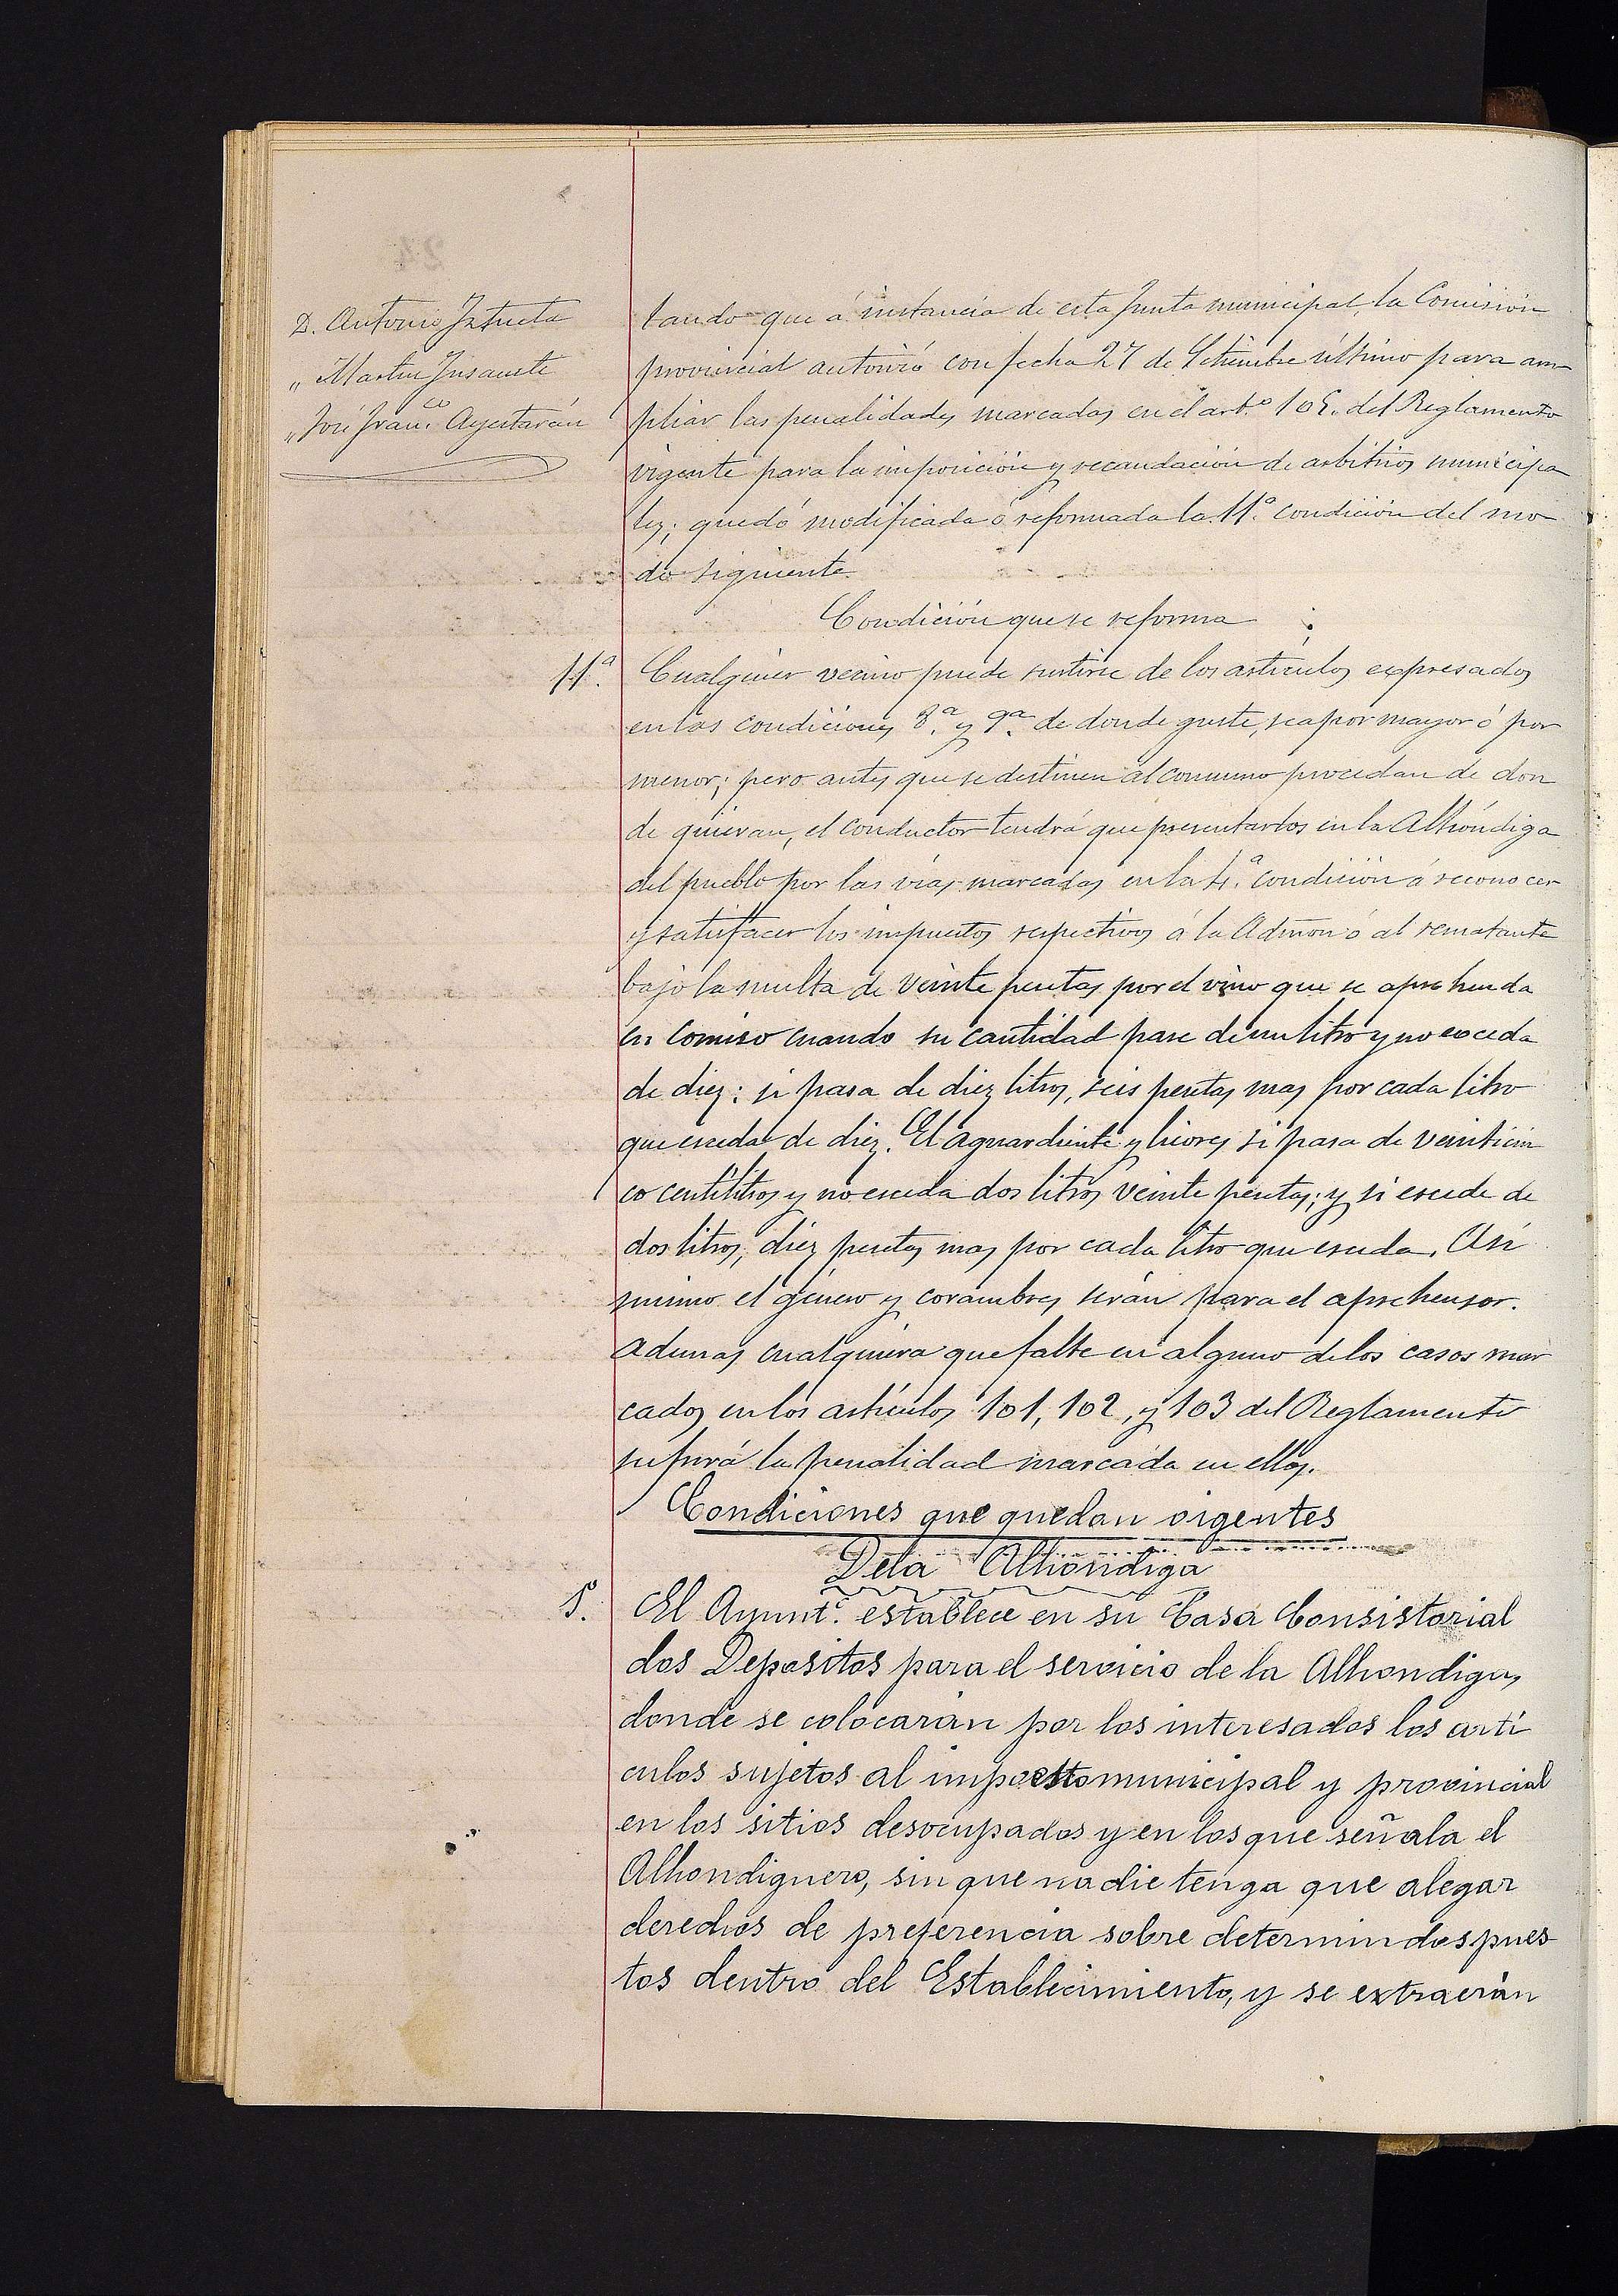 D. Antonio Iztueta
„ Martin Insausti
„ José Fran.co Ayestarán
tando que á instancia de esta Junta municipal, la Comisión
provincial autorizó con fecha 27 de Setiembre último para am
pliar las penalidades marcadas en el art.º 105. del Reglamento
vigente para la imposición y recaudación de arbitrios municipa
les; quedó modificada ó reformada la 11.ª condición del mo
do siguiente.
Condición que se reforma
11.ª Cualquier vecino puede surtirse de los artículos expresados
en las condiciones 8.ª y 9.ª de donde guste, sea por mayor ó por
menor; pero antes que se destinen al consumo procedan de don
de quieran, el conductor tendrá que presentarlos en la Alhóndiga
del pueblo por las vías marcadas en la 4.ª condición á reconocer
y satisfacer los impuestos respectivos á la Admon ó al rematante
bajo la multa de veinte pesetas por el vino que se aprehenda
en comiso cuando su cantidad pase de un litro y no exceda
de diez: si pasa de diez litros, seis pesetas mas por cada litro
que esceda de diez. El aguardiente y licores si pasa de veinticin
co centilitros y no esceda dos litros veinte pesetas; y si escede de
dos litros, diez pesetas mas por cada litro que esceda. Asi
mismo el género y corambres serán para el aprehensor.
Ademas cualquiera que falte en alguno de los casos mar
cados en los artículos 101, 102, y 103 del Reglamento
sufrirá la penalidad marcada en ellos.
Condiciones que quedan vigentes
De la Alhóndiga
1ª. El Ayunt.º establece en su Casa Consistorial
dos Depositos para el servicio de la Alhondiga,
donde se colocarán por los interesados los artí
culos sujetos al impuesto municipal y provincial
en los sitios desocupados y en los que señala el
Alhondiguero, sin que nadie tenga que alegar
derechos de preferencia sobre determindos pues
tos dentro del Establecimiento, y se extraerán